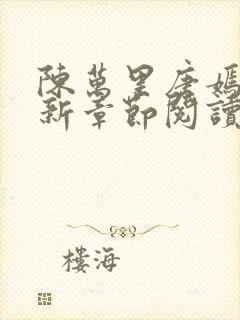 陳萬里唐嫣
新章節閱讀
樓海